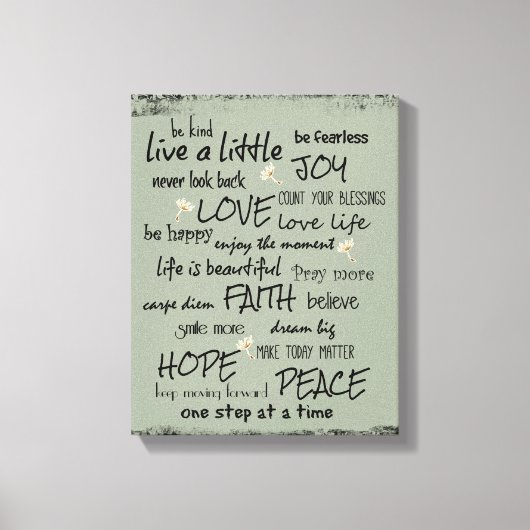 be kind
be fearless
live a little
JOY
never look back
COUNT YOUR BLESSINGS
LOVE
love life
be happy
enjoy the moment
life is beautiful
Pray more
carpe diem
FAITH
believe
smile more
dream big
HOPE
MAKE TODAY MATTER
keep moving forward
PEACE
one step at a time